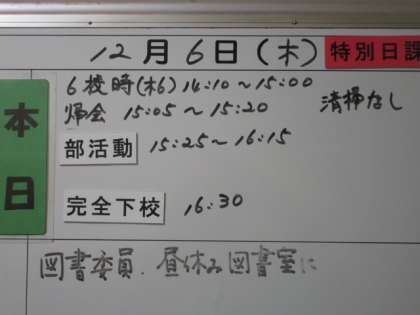 12月6日(木) 特別日課
本日
6校時(木6) 14:10～15:00
帰会 15:05～15:20 清掃なし
部活動 15:25～16:15
完全下校 16:30
図書委員、昼休み図書室に